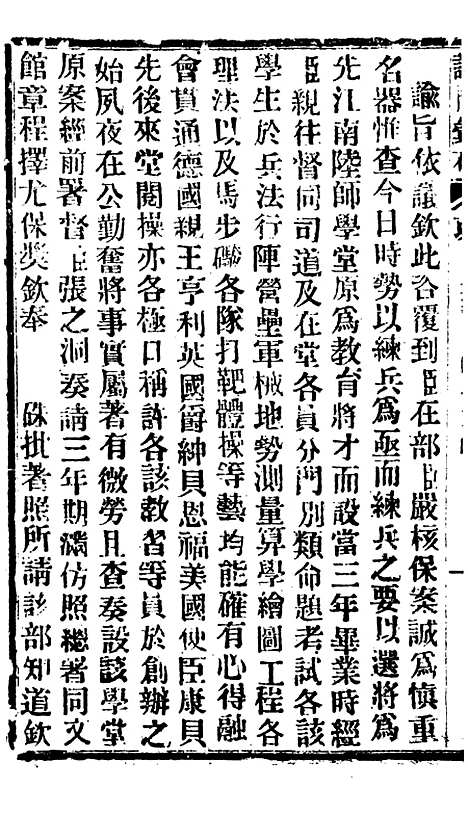 諭旨依議欽此咨覆到臣在部臣嚴核保案誠爲慎重
名器惟查今日時勢以練兵爲亟而練兵之要以選將爲
先江南陸師學堂原爲教育將才而設當三年畢業時經
臣親往督同司道及在堂各員分門別類命題考試各該
學生於兵法行陣營壘軍械地勢測量算學繪圖工程各
理法以及馬步礮各隊打靶體操等藝均能確有心得融
會貫通德國親王亨利英國爵紳貝思福美國使臣康貝
先後來堂閱操亦各極口稱許各該教習等員於創辦之
始夙夜在公勤奮將事實屬著有微勞且查奏設該學堂
原案經前署督臣張之洞奏請三年期滿仿照繼署同文
館章程擇尤保獎欽奉 硃批著照所請該部知道欽